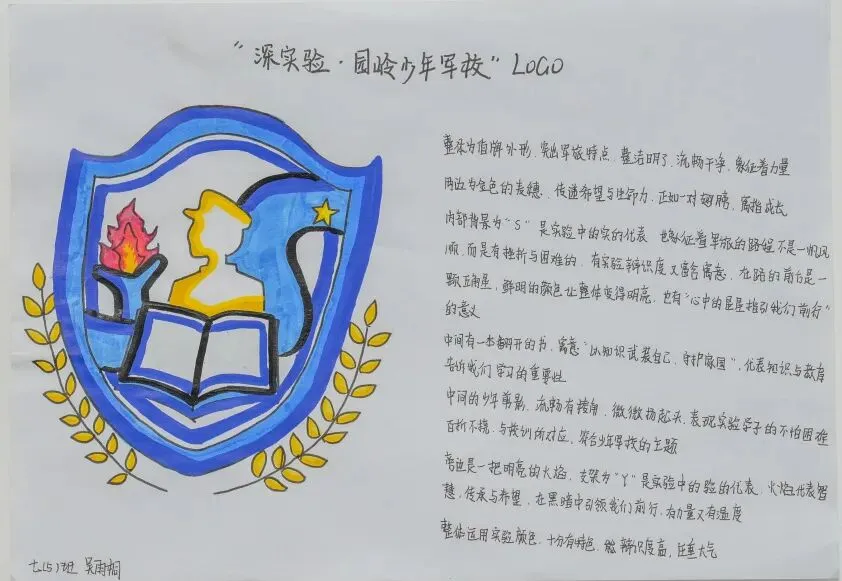 “深实验·园岭少年军校” LOGO
整体为盾牌外形，突出军旅特点，整洁明了，流畅干净，象征着力量
两边为金色的麦穗，传递希望与生命力，正如一对翅膀，寓指成长
内部背景为“S”是实验中的实的代表 也象征着军旅的路途不是一帆风
顺，而是有挫折与困难的，有实验辨识度又富含寓意，在路的前台是一
颗五角星，鲜明的颜色让整体变得明亮，也有“心中的星星指引我们前行”
的意义
中间有一本翻开的书，寓意“以知识武装自己，守护家国”，代表知识与教育
告诉我们学习的重要性
中间的少年剪影，流畅有棱角，微微扬起头，表现实验学子的不怕困难
百折不挠，与校训所对应，符合少年军校的主题
旁边是一把明亮的火焰，支架为“Y”是实验中的验的代表，火焰代表智
慧，传承与希望，在黑暗中引领我们前行，有力量又有温度
整体运用实验颜色，十分有特色，辨识度高，庄重大气
七(5)班 吴雨桐